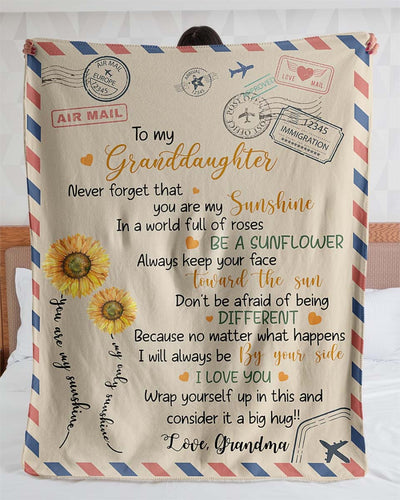 AIR MAIL
EUROPE
12345
AIR MAIL
APPROVED
LOVE MAIL
POST OFFICE
12345
IMMIGRATION
To my
Granddaughter
Never forget that
you are my Sunshine
In a world full of roses
BE A SUNFLOWER
Always keep your face
toward the sun
Don't be afraid of being
DIFFERENT
Because no matter what happens
I will always be By your side
I LOVE YOU
Wrap yourself up in this and
consider it a big hug!!
Love, Grandma
You are my sunshine
my only sunshine